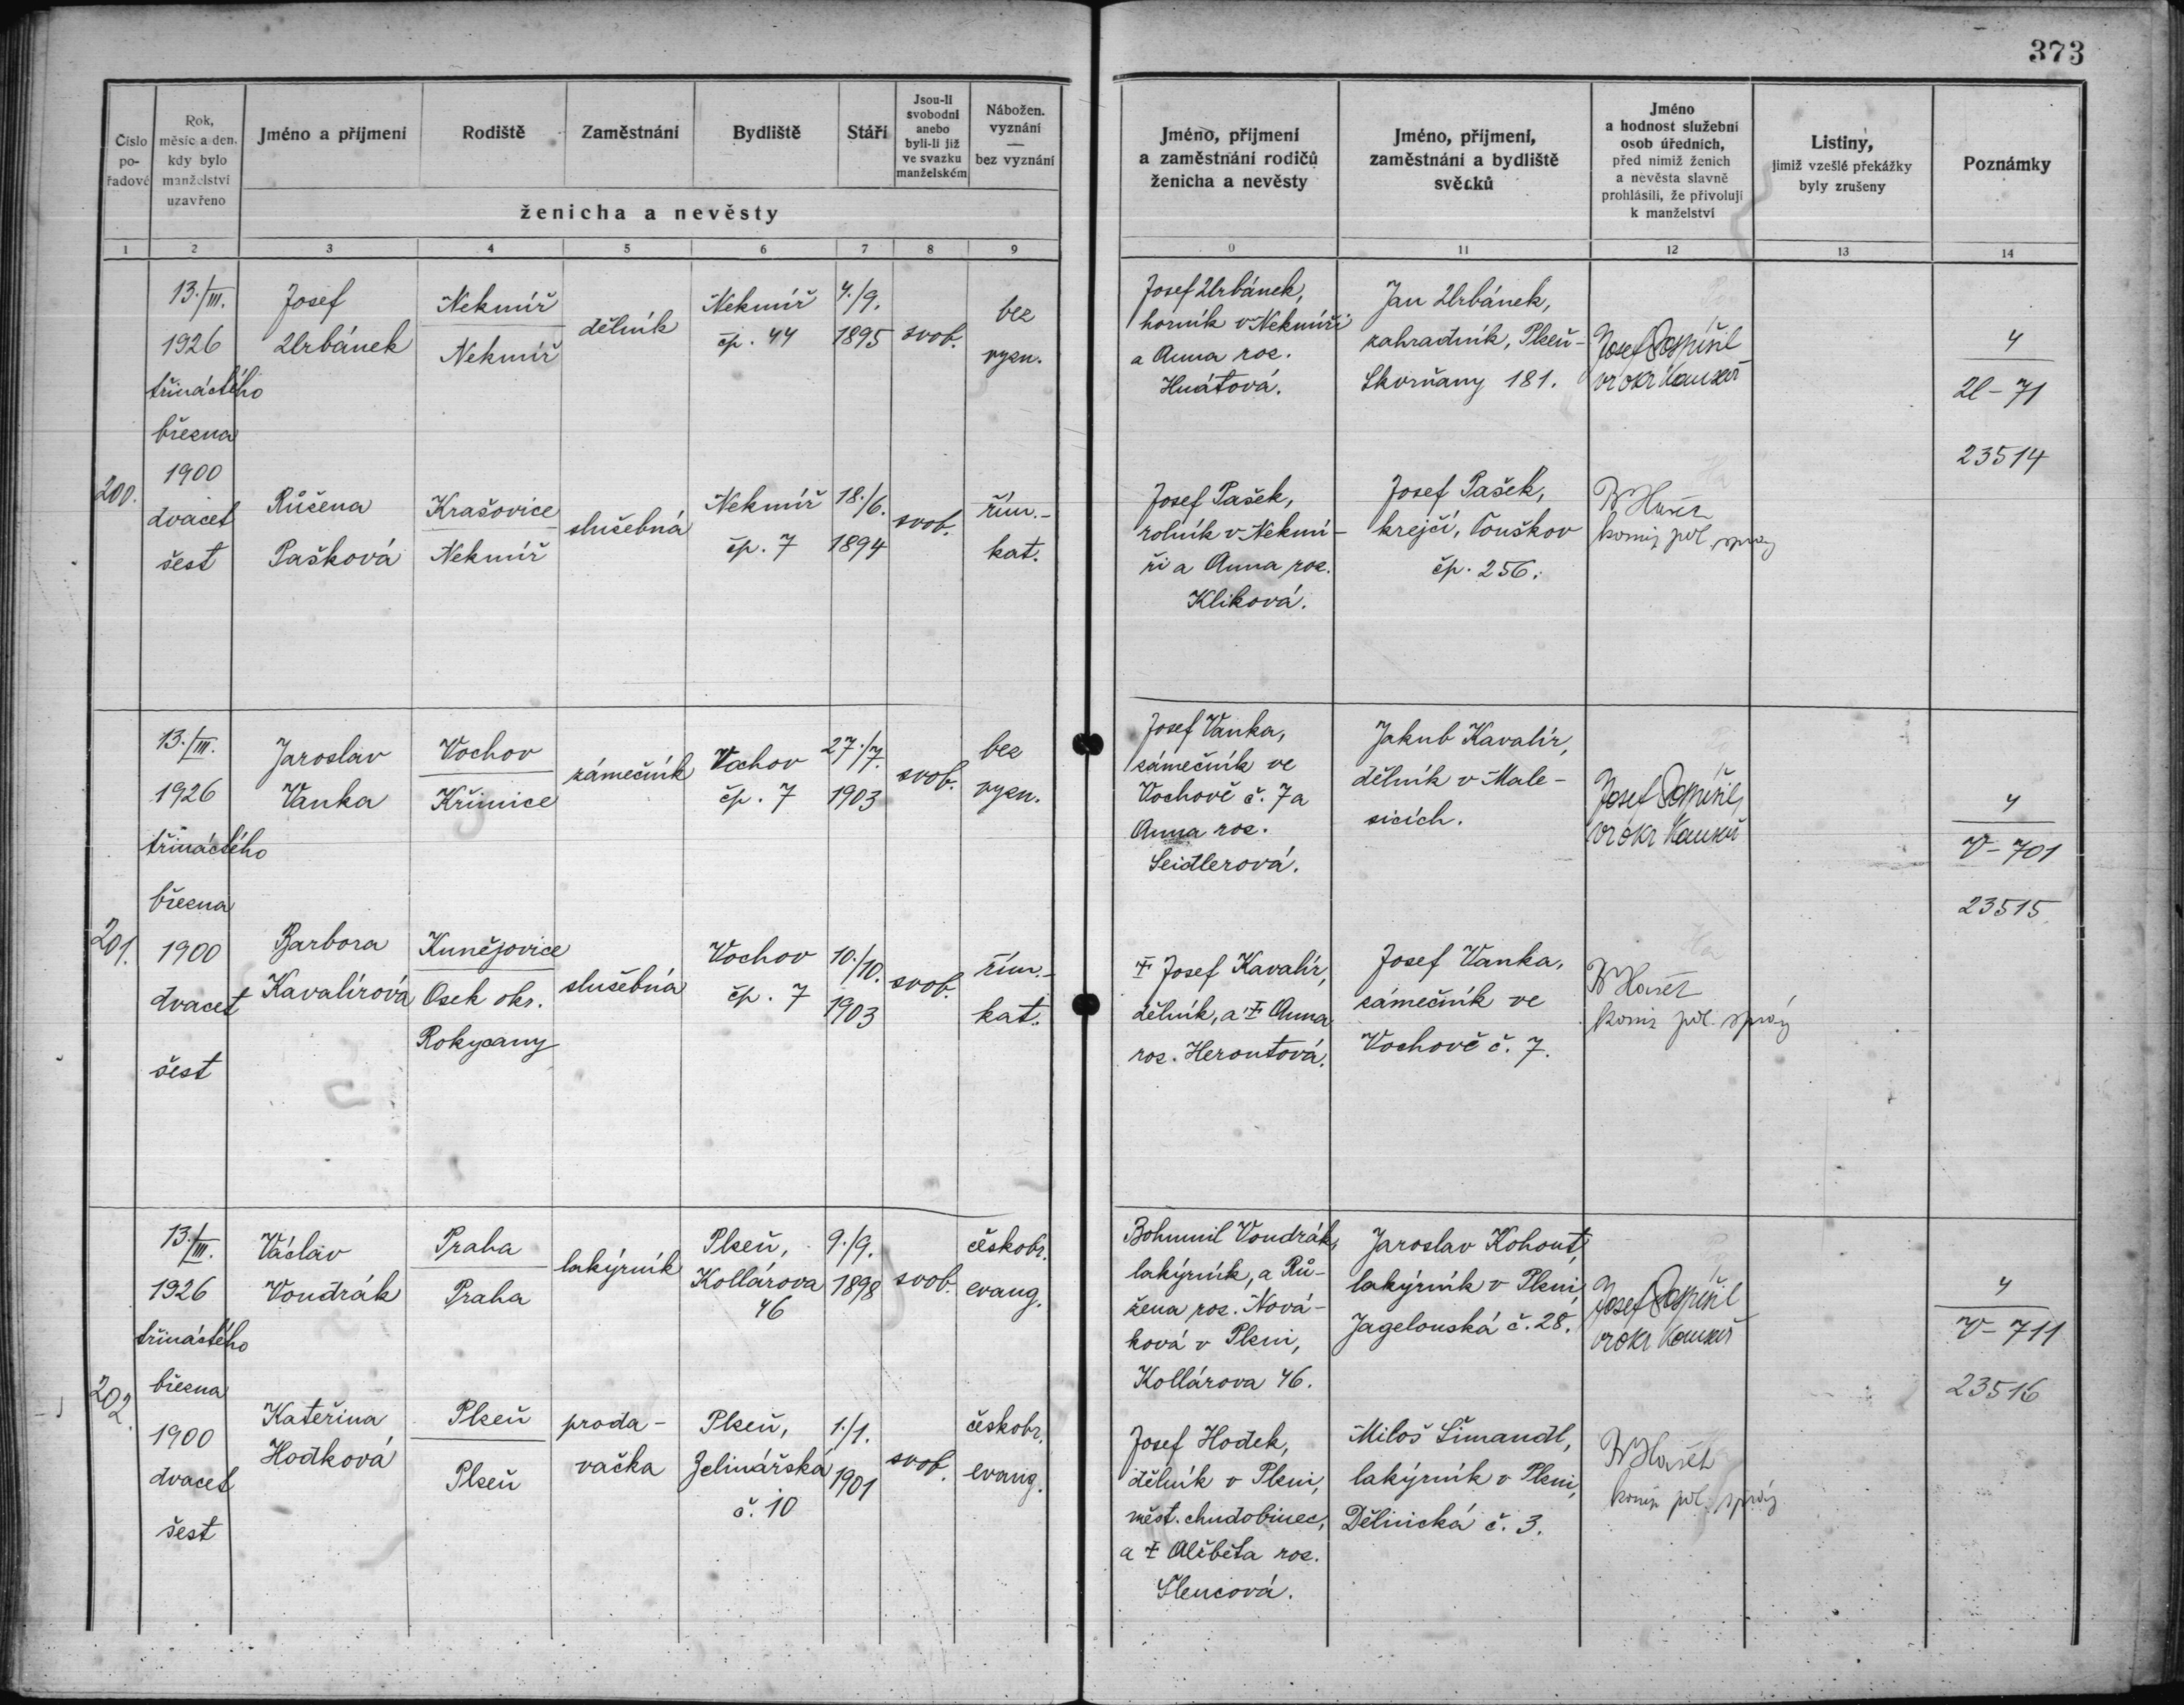 373
Číslo
po-
řadové
Rok,
měsíc a den,
kdy bylo
manželství
uzavřeno
Jméno a příjmení
Rodiště
Zaměstnání
Bydliště
Stáří
Jsou-li
svobodni
anebo
byli-li již
ve svazku
manželském
Nábožen.
vyznání
—
bez vyznání
ženicha a nevěsty
Jméno, příjmení
a zaměstnání rodičů
ženicha a nevěsty
Jméno, příjmení,
zaměstnání a bydliště
svědků
Jméno
a hodnost služební
osob úředních,
před nimiž ženich
a nevěsta slavně
prohlásili, že přivolují
k manželství
Listiny,
jimiž vzešlé překážky
byly zrušeny
Poznámky
1 2 3 4 5 6 7 8 9
0 11 12 13 14
200.
13./III.
1926
třináctého
března
1900
dvacet
šest
Josef
Urbánek
Nekmíř
Nekmíř
dělník
Nekmíř
čp. 44
4./9.
1895
svob.
bez
vyzn.
Josef Urbánek,
horník v Nekmíři
a Anna roz.
Hnátová.
Jan Urbánek,
zahradník, Plzeň-
Skvrňany 181.
Josef Pospíšil
4
U-71
23514
Růžena
Pašková
Krašovice
Nekmíř
služebná
Nekmíř
čp. 7
18./6.
1894
svob.
řím.-
kat.
Josef Pašek,
rolník v Nekmí-
ři a Anna roz.
Kliková.
Josef Pašek,
krejčí, Touškov
čp. 256.
komis pol. správy
201.
13./III.
1926
třináctého
března
1900
dvacet
šest
Jaroslav
Vanka
Vochov
Křimice
zámečník
Vochov
čp. 7
27./7.
1903
svob.
bez
vyzn.
Josef Vanka,
zámečník ve
Vochově č. 7 a
Anna roz.
Seidlerová.
Jakub Kavalír,
dělník v Male-
sicích.
Josef Pospíšil
4
V-701
23515
Barbora
Kavalírová
Kunějovice
Osek okr.
Rokycany
služebná
Vochov
čp. 7
10./10.
1903
svob.
řím.-
kat.
† Josef Kavalír,
dělník, a † Anna
roz. Herontová.
Josef Vanka,
zámečník ve
Vochově č. 7.
komis pol. správy
202.
13./III.
1926
třináctého
března
1900
dvacet
šest
Václav
Vondrák
Praha
Praha
lakýrník
Plzeň,
Kollárova
46
9./9.
1898
svob.
českobr.
evang.
Bohumil Vondrák,
lakýrník, a Rů-
žena roz. Nová-
ková v Plzni,
Kollárova 46.
Jaroslav Kohout,
lakýrník v Plzni,
Jagelonská č. 28.
Josef Pospíšil
4
V-711
23516
Kateřina
Hodková
Plzeň
Plzeň
proda-
vačka
Plzeň,
Zelinářská
č. 10
1./1.
1901
svob.
českobr.
evang.
Josef Hodek,
dělník v Plzni,
měst. chudobinec,
a † Alžběta roz.
Slencová.
Miloš Šimandl,
lakýrník v Plzni,
Dělnická č. 3.
komis pol. správy